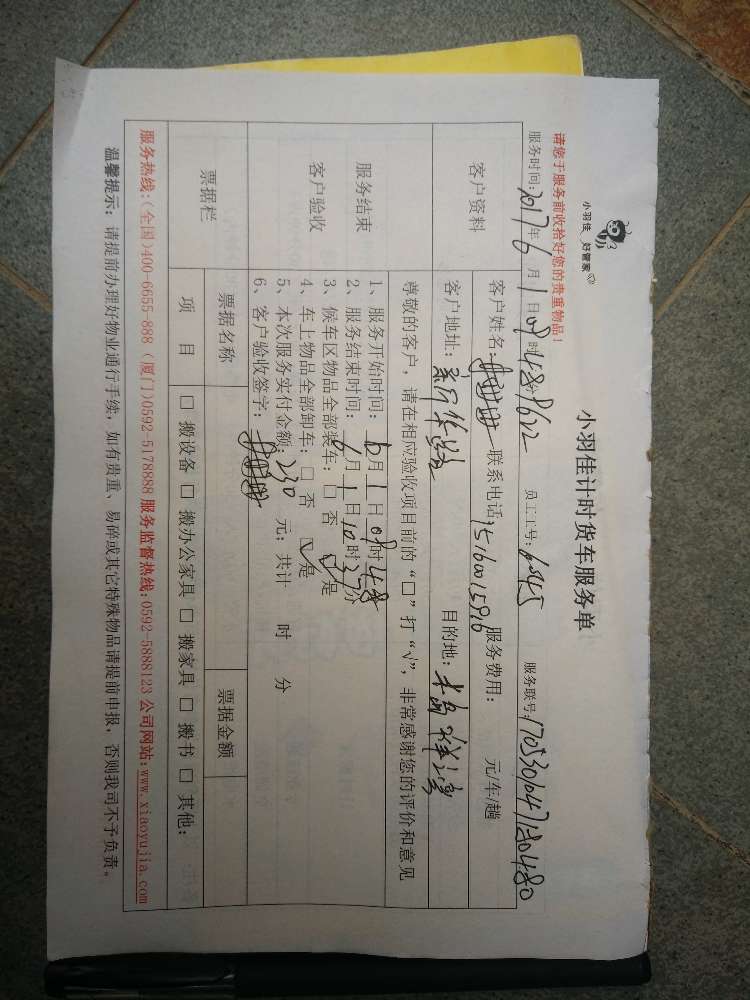 小羽佳 好管家
小羽佳计时货车服务单
请您于服务前收拾好您的贵重物品!
服务时间:2017年6月1日08时48分 员工工号: 服务联号:
客户资料
客户姓名: 联系电话:15160015916 服务费用: 元/车/趟
客户地址: 目的地:
尊敬的客户,请在相应验收项目前的“□”打“√”,非常感谢您的评价和意见
服务结束
客户验收
1、服务开始时间:6月1日08时48
2、服务结束时间:6月1日10时35分
3、候车区物品全部装车:□ 否 ☑ 是
4、车上物品全部卸车:□ 否 ☑ 是
5、本次服务实付金额:230 元;共计 时 分
6、客户验收签字:
票据栏
票据名称 票据金额
项 目 □ 搬设备 □ 搬办公家具 □ 搬家具 □ 搬书 □ 其他:
服务热线:(全国)400-6655-888 (厦门)0592-5178888 服务监督热线:0592-5888123 公司网站:www.xiaoyujia.com
温馨提示:请提前办理好物业通行手续,如有贵重、易碎或其它特殊物品请提前申报,否则我司不予负责。